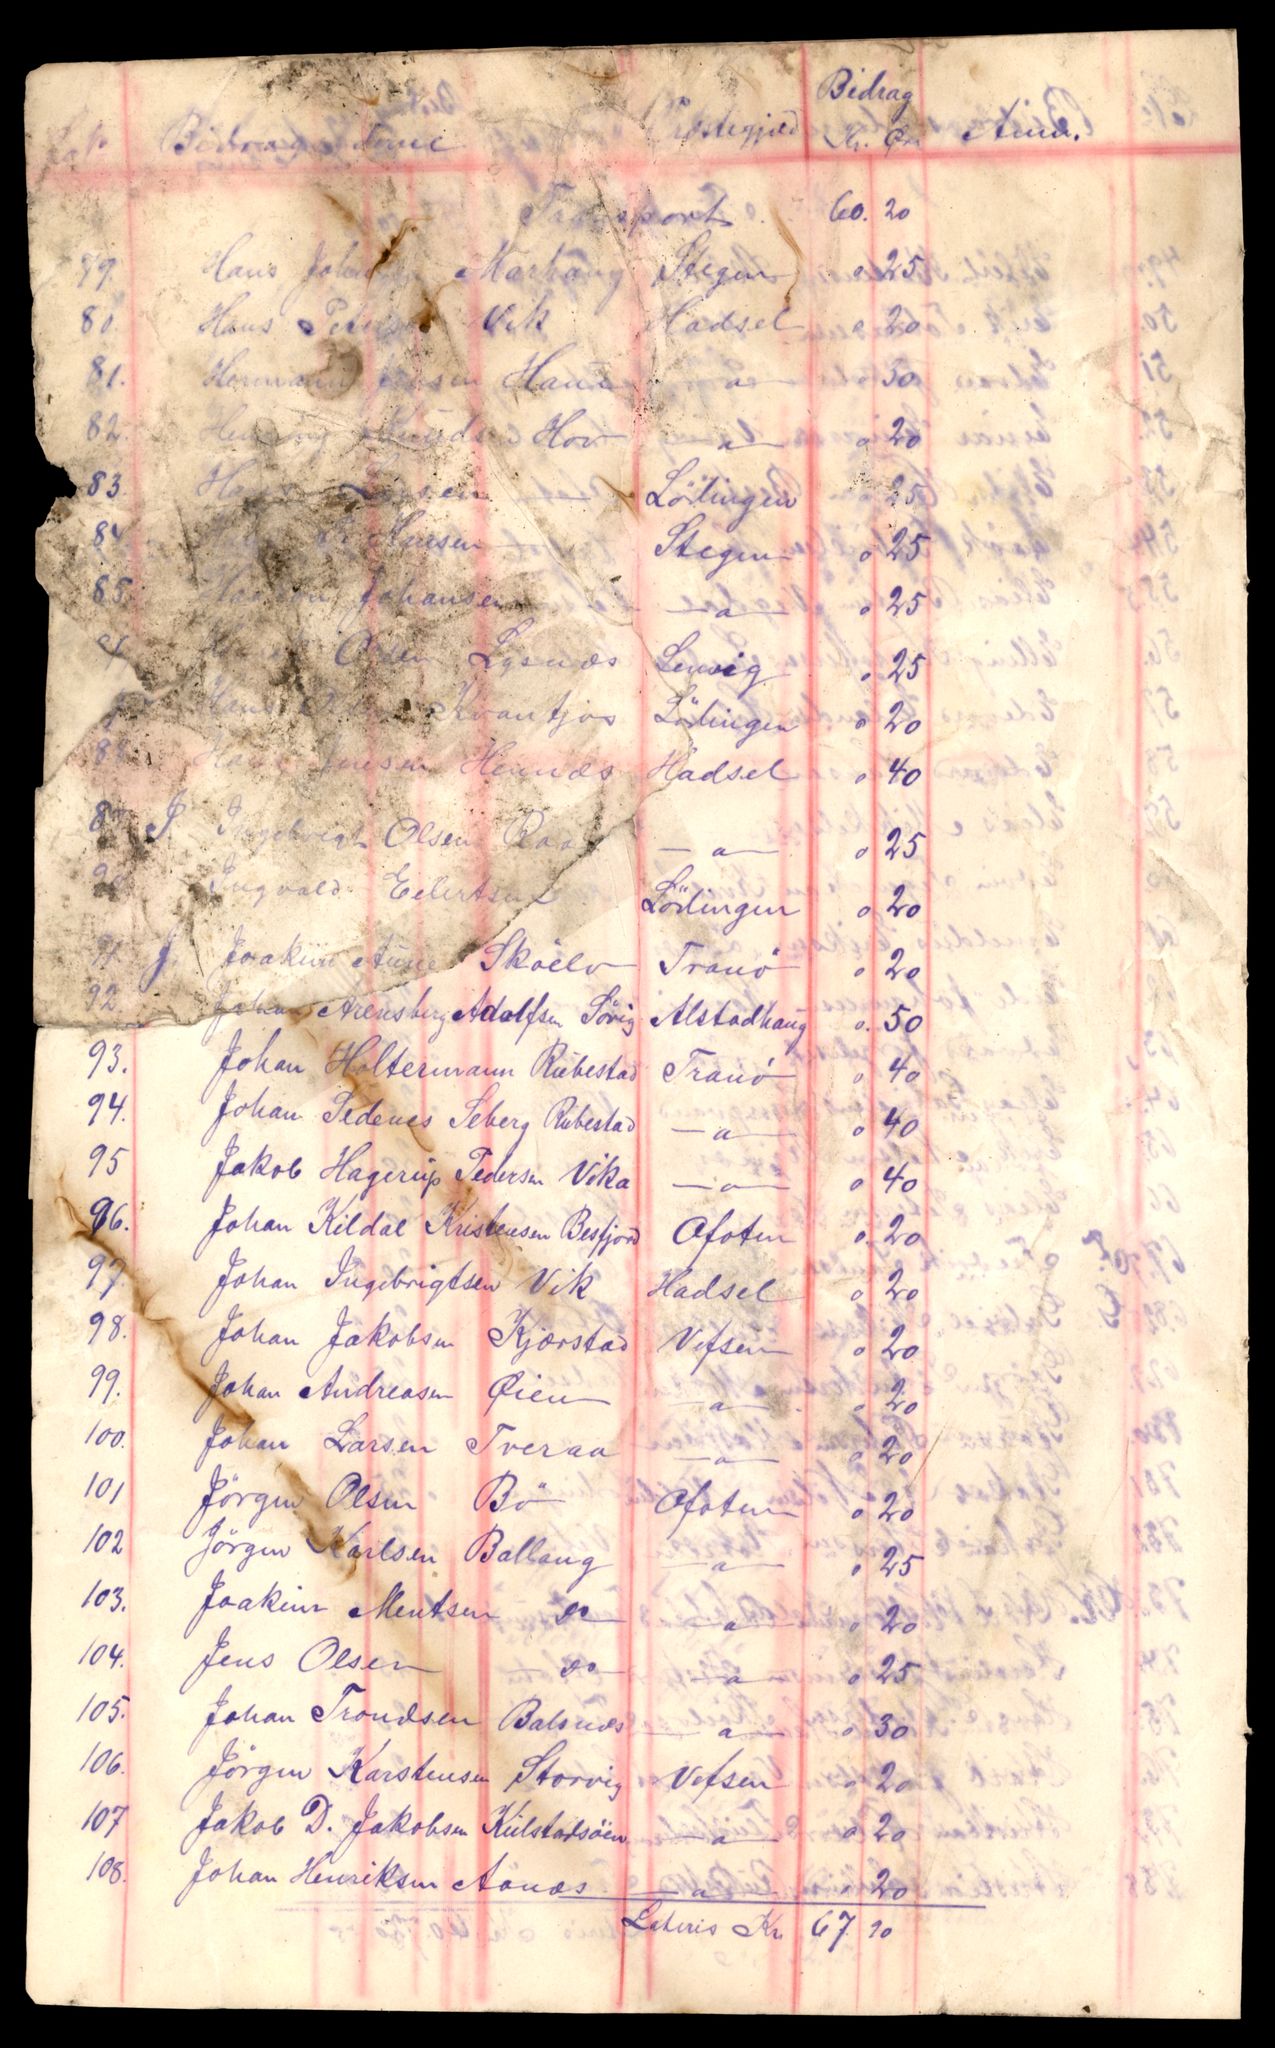 Bidrag
Præstegjeld Kr. Øre Anm.
Transport 60. 20
79. Hans Johnsen Marhaug Stegen " 25
80. Hans Petersen Vik Hadsel " 20
81. Hermann Jensen Haue — " — 30
82. Hov — " — " 20
83. Hans Larsen Lödingen " 25
84. Stegen " 25
85. Haakon Johansen — " — " 25
Olsen Lysnæs Lenvig " 25
Hans Olsen Kvantjos Lödingen " 20
88 Hans Jensen Hennæs Hadsel " 40
J. Ingebrigt Olsen Raa — " — " 25
90 Ingvald Eilertsen Lödingen " 20
91 J. Joakim Aune Skáelv Tranö " 20
92. Johan Arensberg Adolfsen Sövig Alstadhaug " 50
93. Johan Holtermann Rubestad Tranö " 40
94. Johan Pedenes Seberg Rubestad — " — " 40
95 Jakob Hagerup Pedersen Vika — " — " 40
96. Johan Kildal Kristensen Besfjord Ofoten " 20
97. Johan Ingebrigtsen Vik Hadsel " 20
98. Johan Jakobsen Kjærstad Vefsen " 20
99. Johan Andreasen Øien — " — " 20
100. Johan Larsen Tveraa — " — " 20
101 Jörgen Olsen Bö Ofoten " 20
102 Jörgen Karlsen Ballang — " — " 25
103. Joakim Mentsen do — " — " 20
104. Jens Olsen do — " — " 25
105. Johan Trondsen Balsnæs — " — " 30
106. Jörgen Karstensen Storvig Vefsen " 20
107 Jakob D. Jakobsen Kulstadsöen — " — " 20
108. Johan Henriksen Aanæs — " — " 20
Lateris Kr. 67. 90